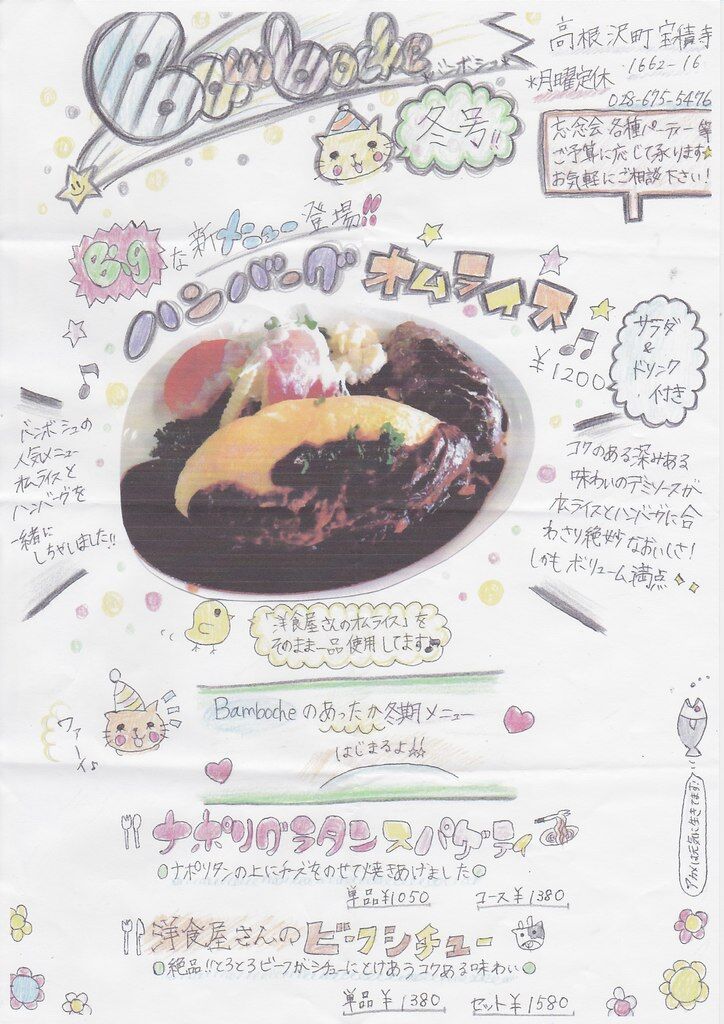 Bamboche
バンボシュ
冬号!!
高根沢町宝積寺
1662-16
*月曜定休
028-675-5476
忘念会 各種パーティー等
ご予算に応じて承ります☆
お気軽にご相談下さい!
BIGな新メニュー登場!!
ハンバーグオムライス
¥1200
サラダ
&
ドリンク
付き
バンボシュの
人気メニュー
オムライスと
ハンバーグを
一緒に
しちゃしました!!
コクのある深みある
味わいのデミソースが
オムライスとハンバーグに合
わさり絶妙なおいしさ!
しかもボリューム満点
「洋食屋さんのオムライス」を
そのまま一品使用してます♪
Bambocheのあったか冬期メニュー
はじまるよ!!
ワァーイ♪
アカメは元気に生きてます!
ナポリグラタンスパゲティ
ナポリタンの上にチーズをのせて焼きあげました
単品¥1050 コース¥1380
洋食屋さんのビーフシチュー
絶品!!とろとろビーフがシチューにとけあうコクある味わい
単品¥1380 セット¥1580